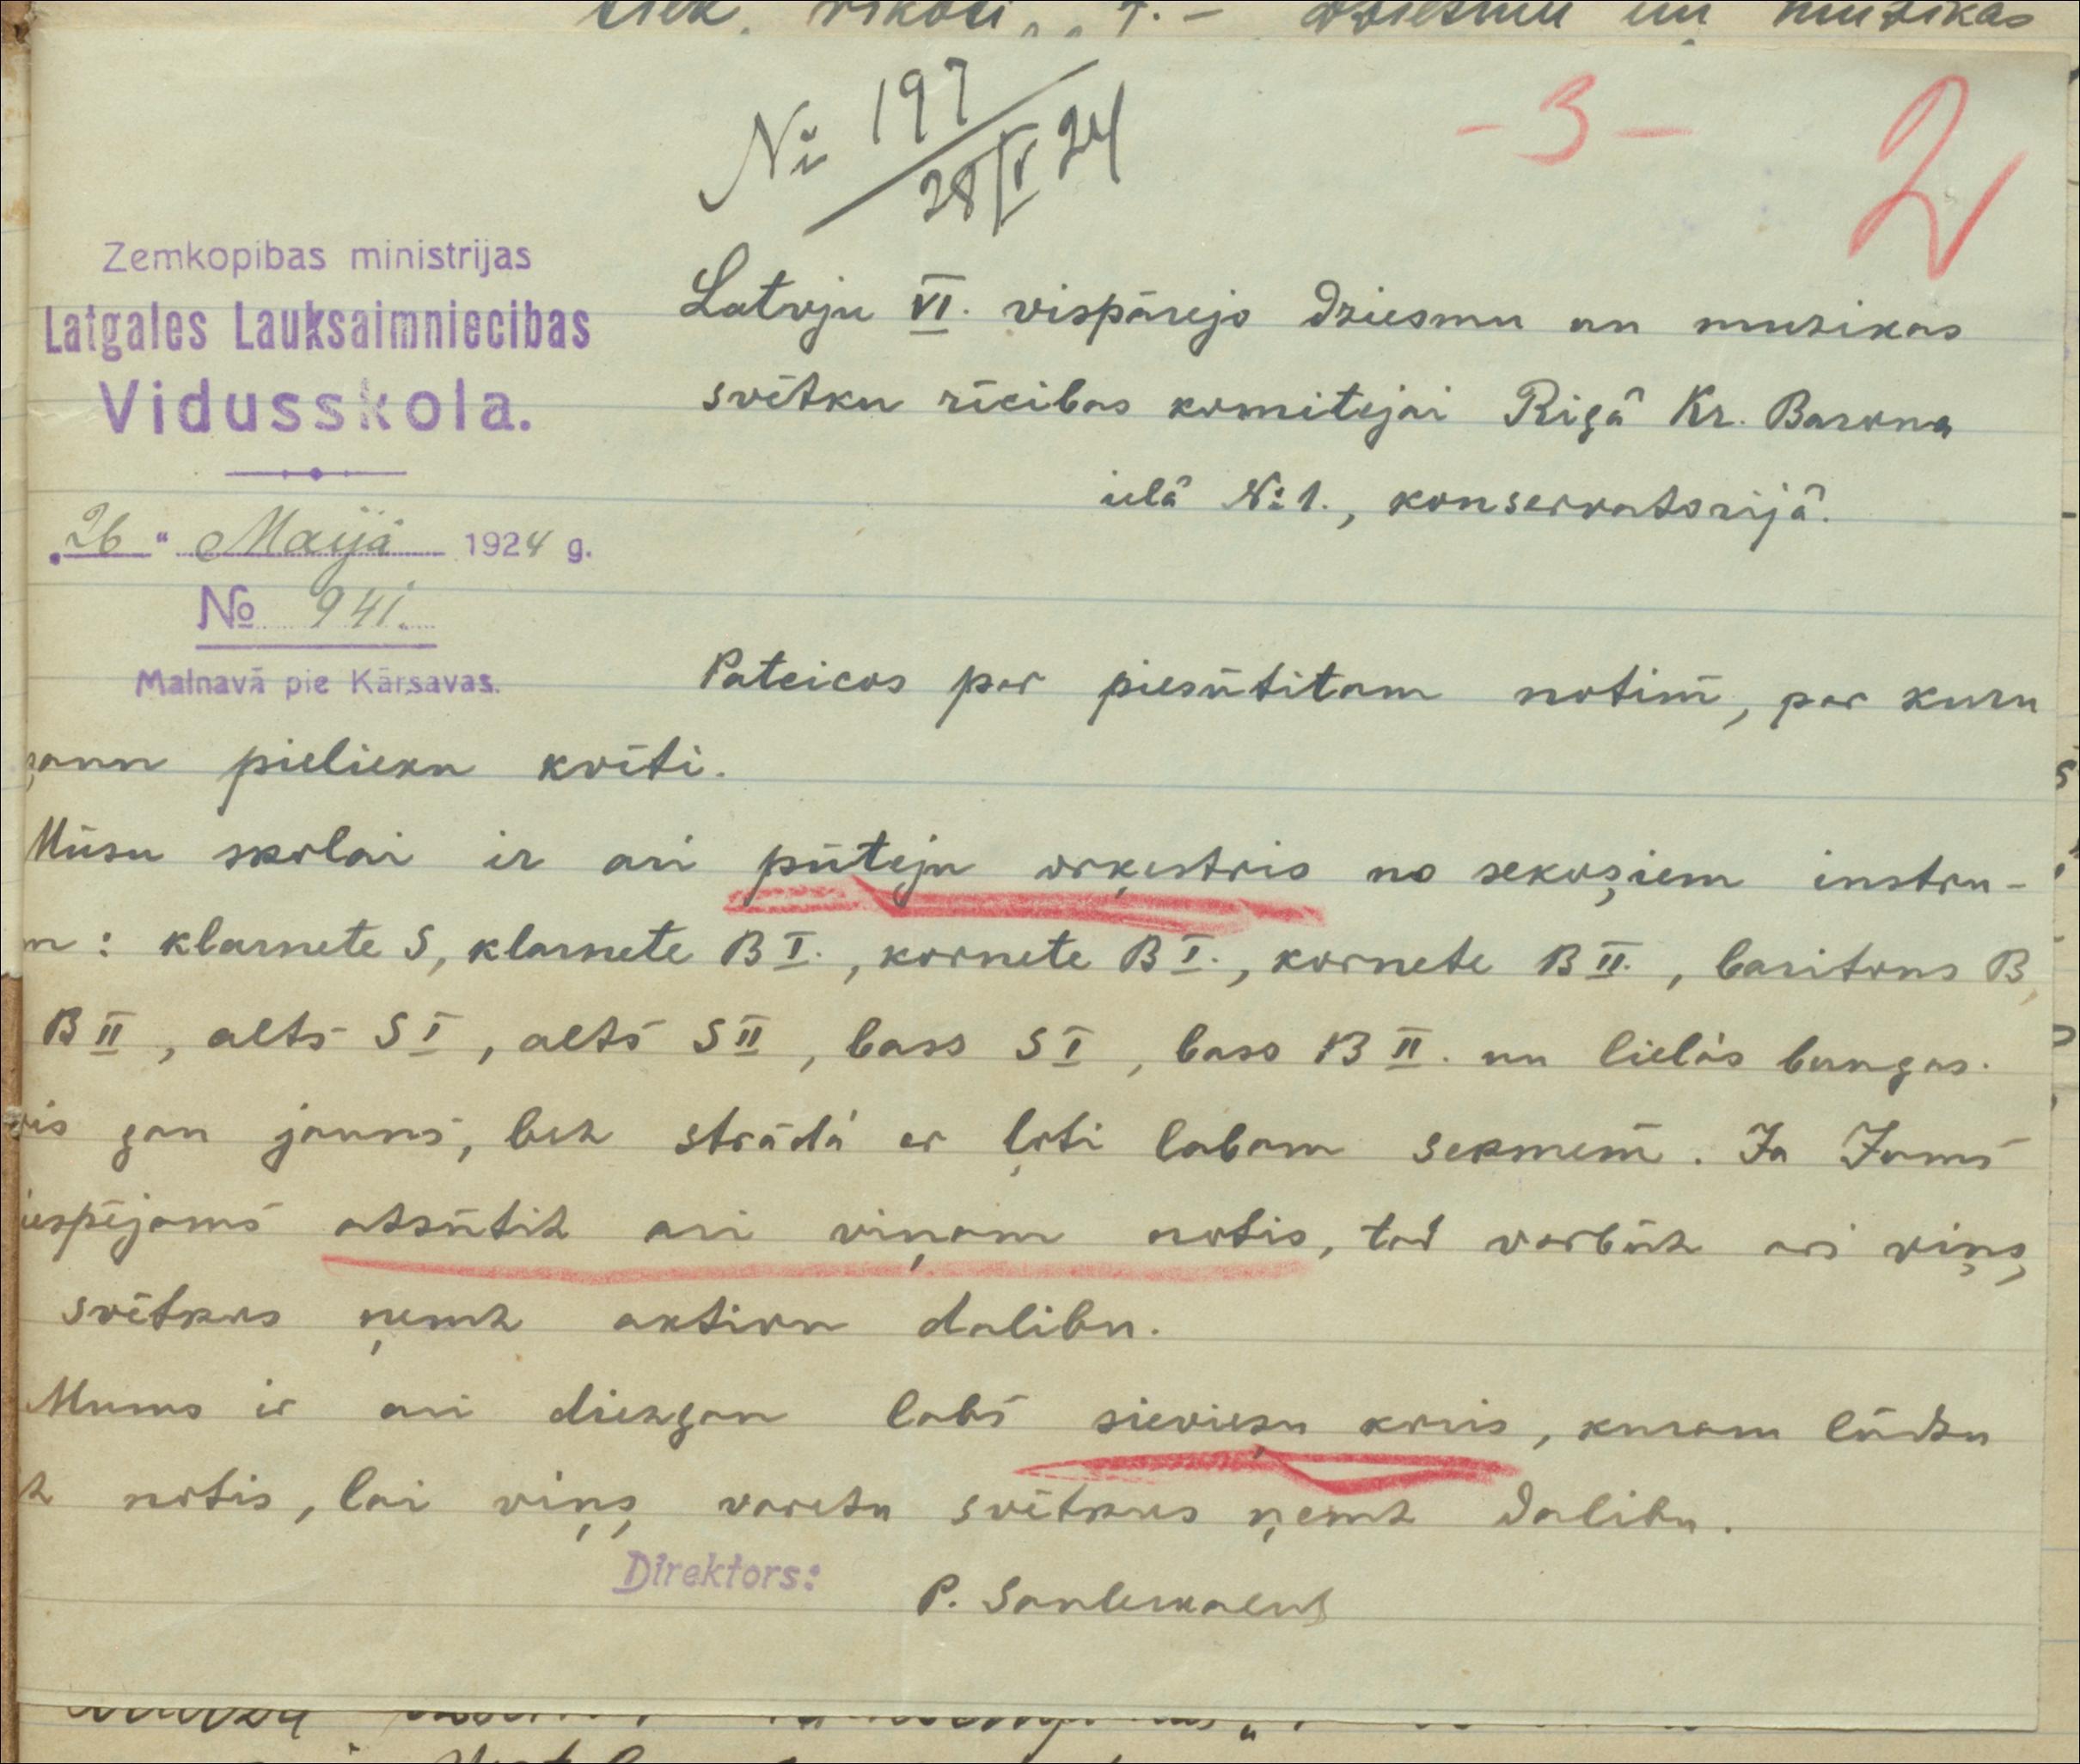 tiek rīkoti, 7. - Dziesmu un muzikas
№ 197
28/V 24
- 3 -
2
Zemkopibas ministrijas
Latgales Lauksaimniecibas
Vidusskola.
„26“ Maijā 1924 g.
№ 941.
Malnavā pie Kārsavas.
Latvju VI. vispārejo dziesmu un muzikas
svētku rīcibas komitejai Rigā Kr. Barona
ielā № 1., konservatorijā.
Pateicos par piesūtitam notim̄, par kuru
ņann pielieku kvīti.
Mūsu skolai ir ari pūteju orķestris no sekošiem instru-
m: klarnete S, klarnete B I., kornete B I., kornete B II., baritons B,
B II, alts S I, alts S II, bass S I, bass B II. un lielās bungas.
ris gan jauns, bet strādā ar ļoti labam sekmem̄. Ja Jums
iespējams atsūtit ari viņam notis, tad varbūt ari viņš
svētkos ņemt aktivu dalibu.
Mums ir ari diezgan labs sieviešu koris, kuram lūdzu
t notis, lai viņš varetu svētkos ņemt dalibu.
Direktors:
P.